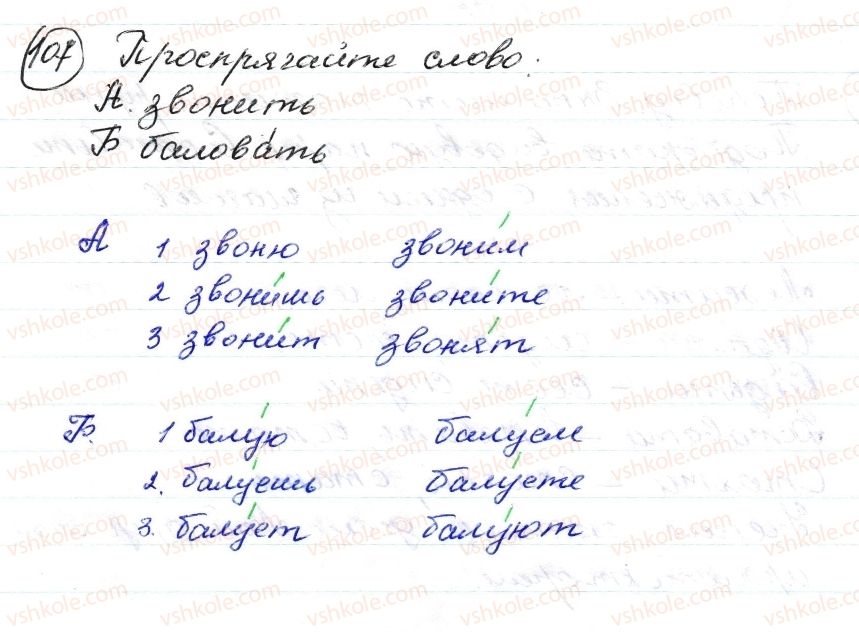 107 Проспрягайте слово.
А. звонить
Б балова́ть
А 1 звоню звони́м
2 звони́шь звони́те
3 звони́т звоня́т
Б. 1 балу́ю балу́ем
2. балу́ешь балу́ете
3. балу́ет балу́ют
vshkole.com